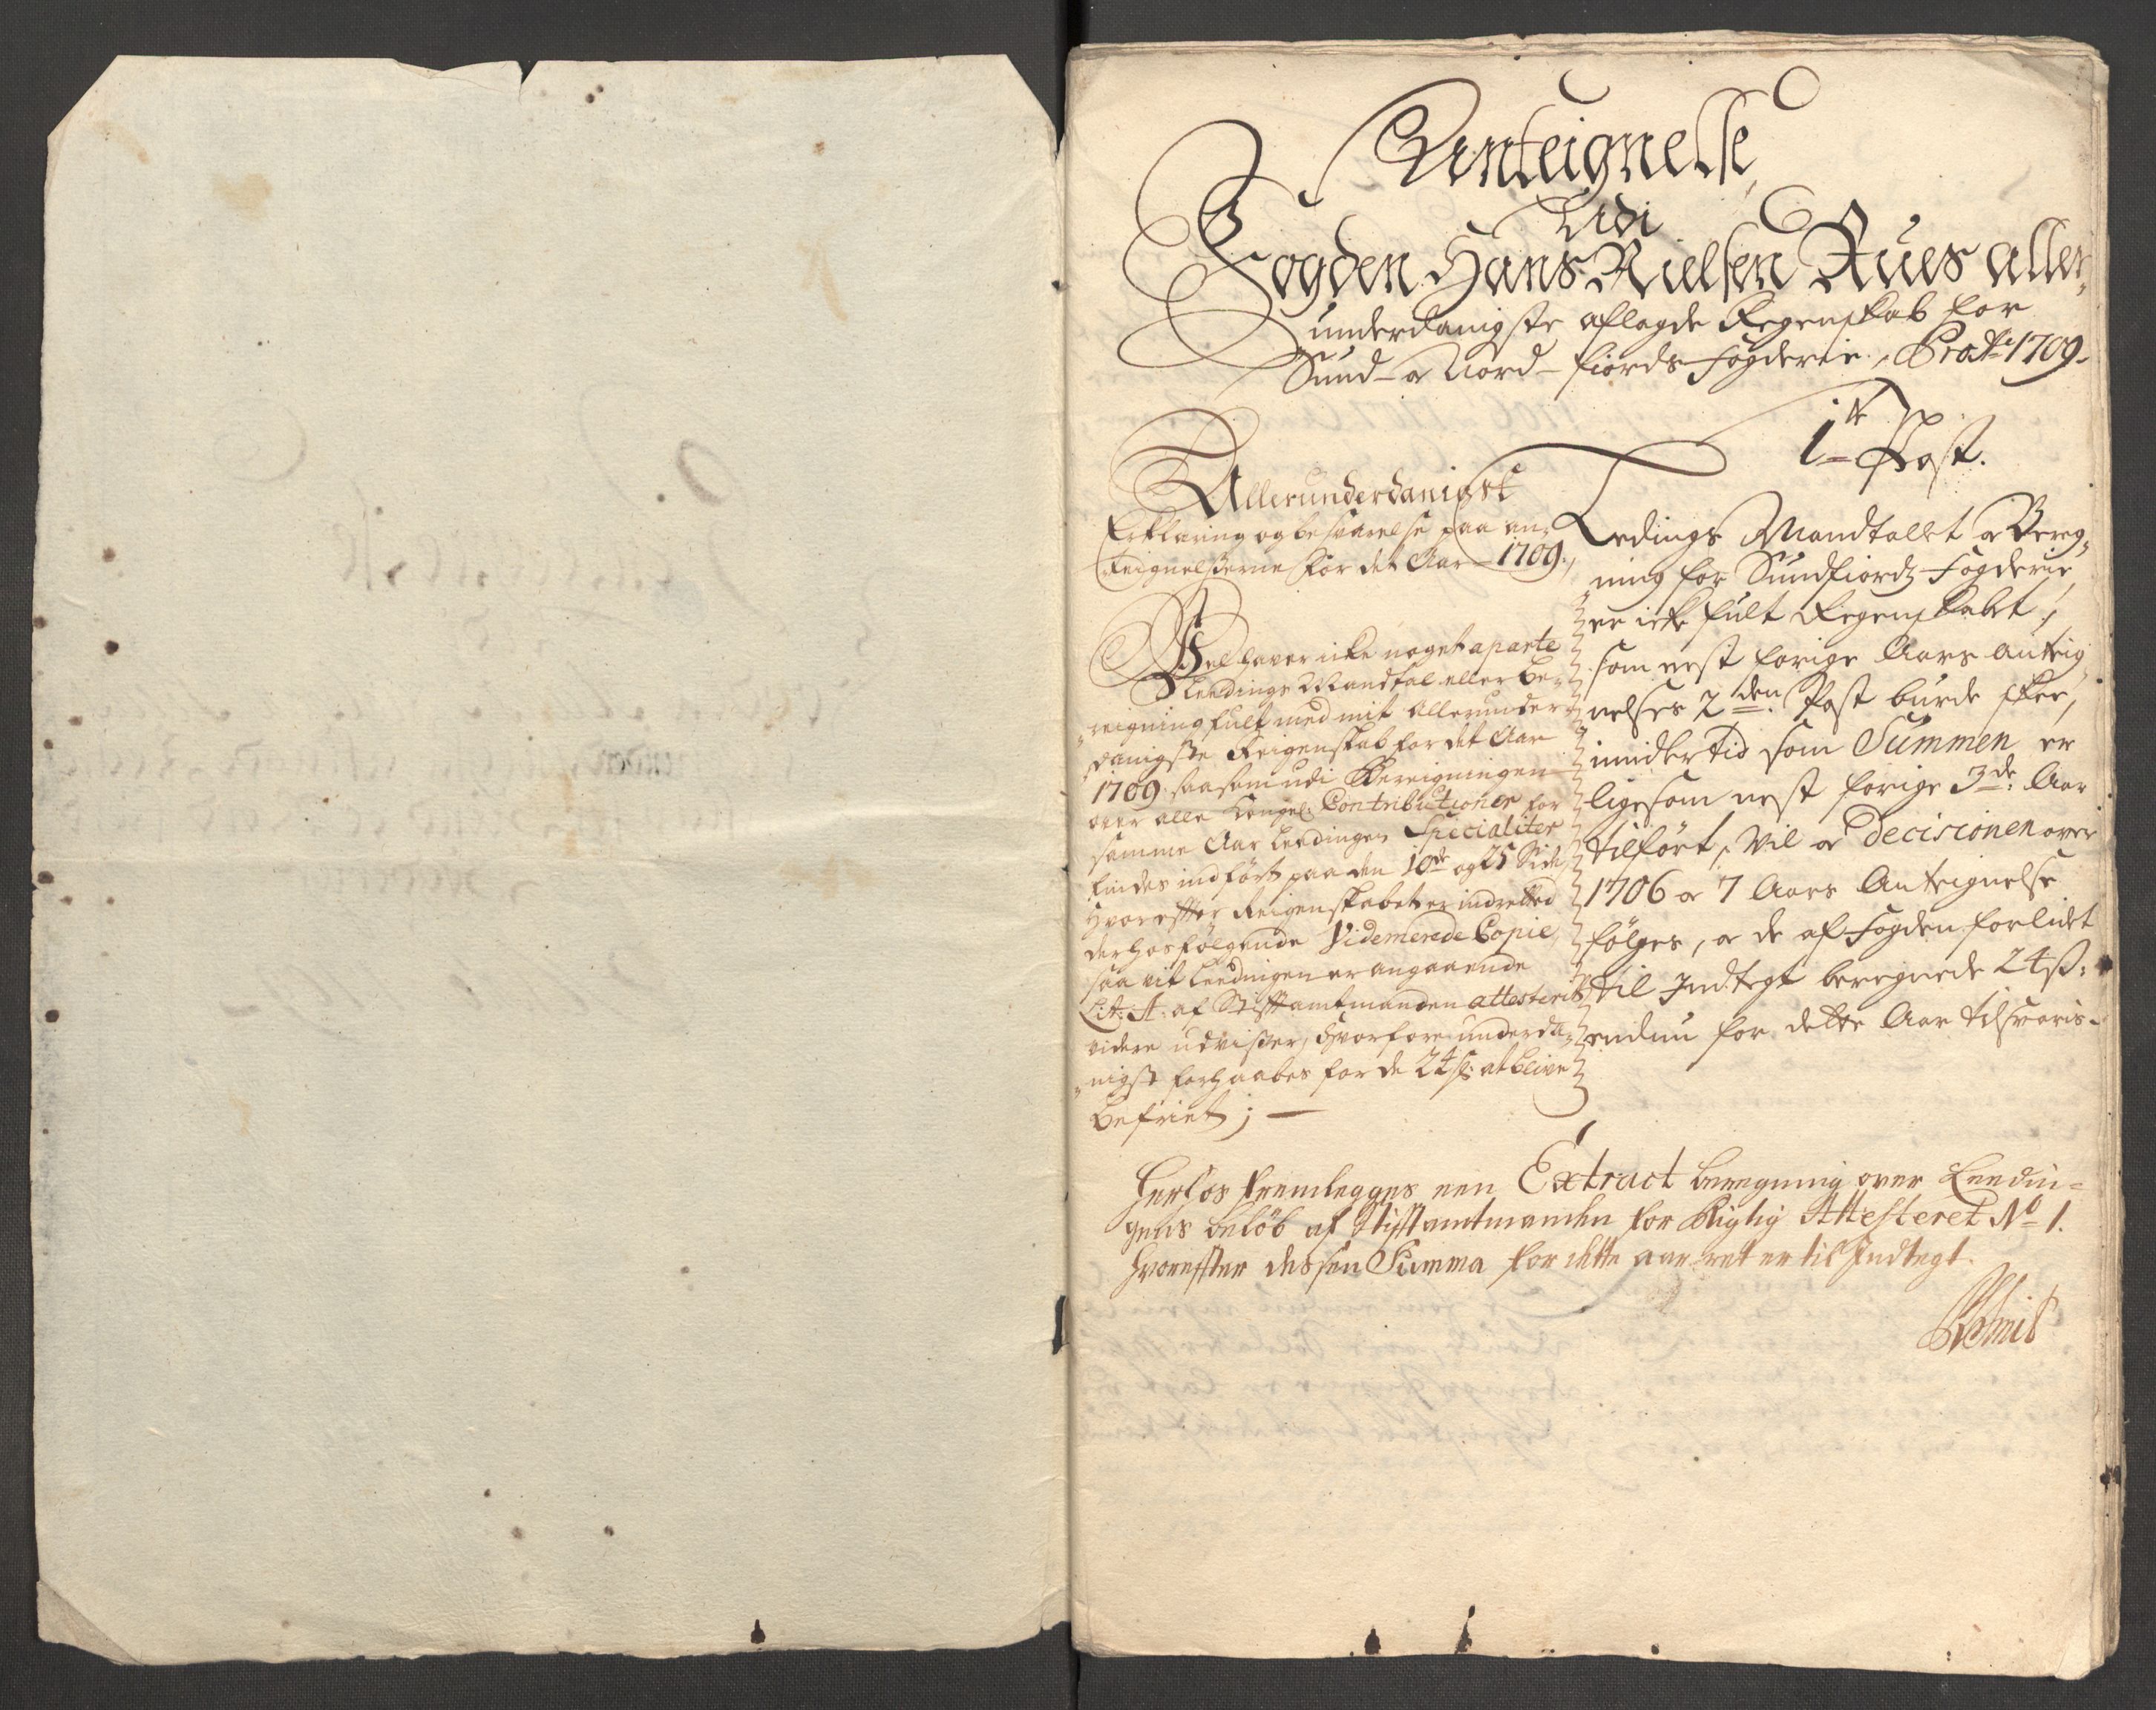 Anteignelse
Udi
Fogden Hans Nielsen Rues aller„
underdanigste aflagde Regenskab for
Sund- og Nord-fiords Fogderie, Pro Ao 1709.
1te Post.
Allerunderdanigst
Erklæring og besvarelse paa an„
teignelserne for det Aar 1709.,
Vel haver icke noget aparte
Leedings Mandtal eller be„
reigning fult med mit Allerunder„
danigste Reigenskab for det Aar
1709. saasom udi Bereigningen
over alle Kongel: Contributioner for
samme Aar Leedingen Specialiter
findes indført paa den 10de og 25 Side
Hvorefter Reigenskabet er indretted
derhos følgende Videmerede Copie
saa vit Leedingen er angaaende
Lit: A: af Stiftamtmanden attesterit
videre udviser, Hvorfore underda„
nigst forhaabes for de 24 s: at blive
befriet; —
Ledings Mandtallet og Bereg„
ning for Sundfiords Fogderie,
er icke fult Regenskabet,
som nest forige Aars anteig„
nelses 2den Post burde skee,
imidlertid som Summen er
ligesom nest forige 3de: Aar
tilført, vil og Decisionen over
1706 og 7 Aars Anteignelse
følges, og de af Fogden forlidet
til Indtegt beregnede 24 s:
endnu for dette Aar tilsvaris.
Herhos fremlegges een Extract beregning over Leedin„
gens beløb af Stiftamtmanden for Rigtig Attesteret No 1.
hvorefter dessen Summa for dette aar ret er til Indtegt.